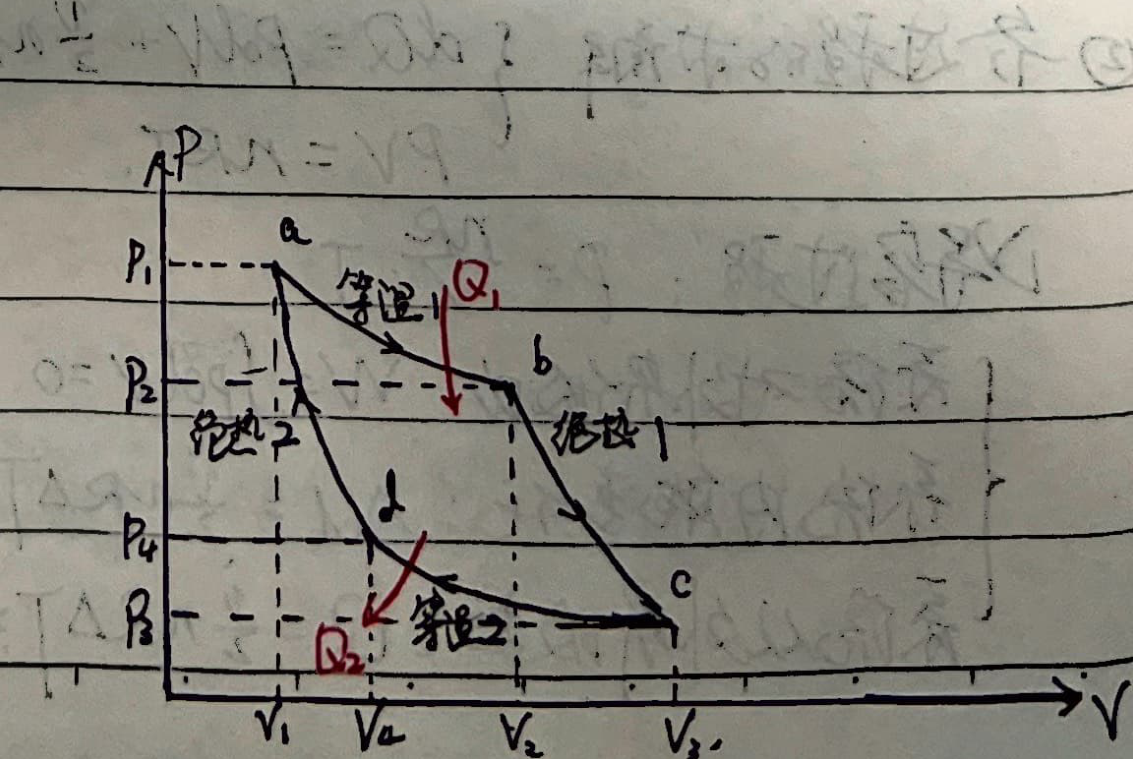 P
a
P₁
等温1
Q₁
b
P₂
绝热2
绝热1
d
P₄
c
P₃
等温2
Q₂
V₁
V₄
V₂
V₃.
V